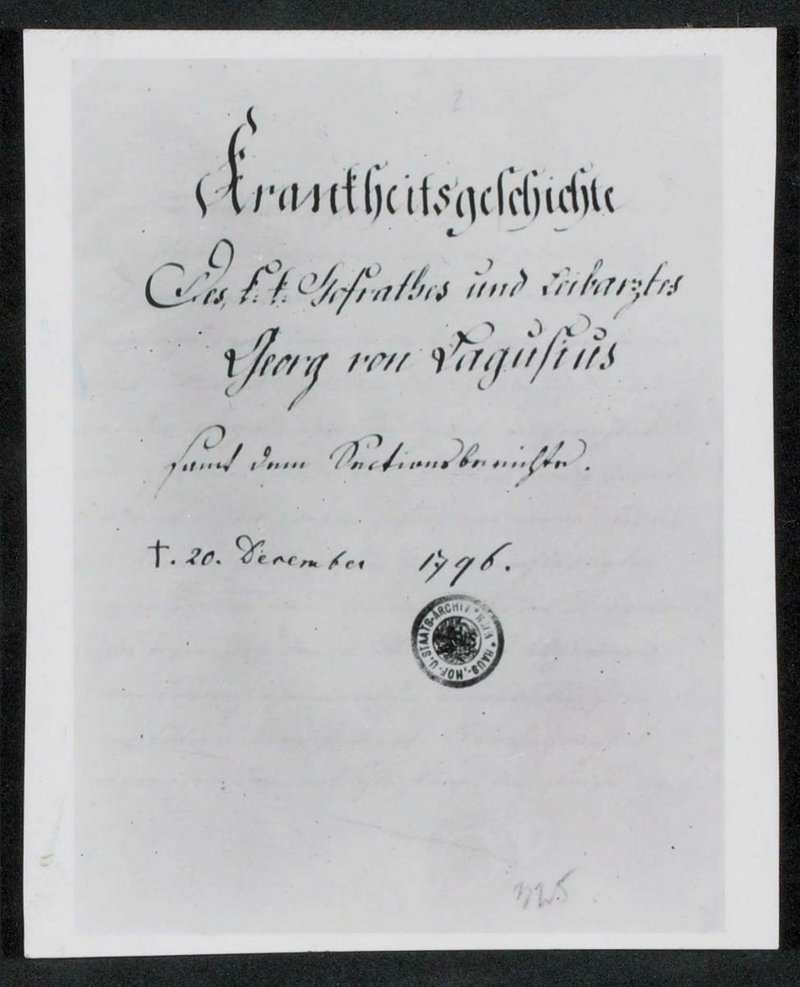 2
Krankheitsgeschichte
Des k: k: Hofrathes und Leibarztes
Georg von Lagusius
samt dem Sectionsberichte.
†. 20. December 1796.
HAUS-, HOF- U. STAATS-ARCHIV * WIEN *
325